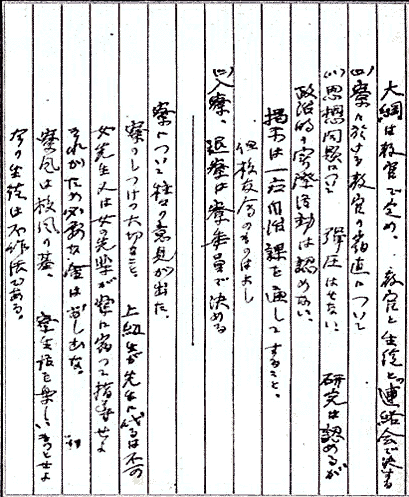 大綱は教官で定め、教官と生徒と連絡会で決する
(ロ)寮に於ける教官の宿直について
(ハ)思想問題について 弾圧はせない 研究は認めるが
政治的の実際活動は認めない。
掲示は一応自治課を通してすること。
但校友会のものはよし
(ニ)入寮、退寮は寮委員で決める
寮について種々の意見が出た。
寮のしつけの大切なこと、 上級生が先生に代るは不可
女先生又は女の先輩が寮に宿って指導せよ
それがため必要な金は出し出な。
寮風は校風の基。 寮生活を楽しいものとせよ
な生徒は不作法である。